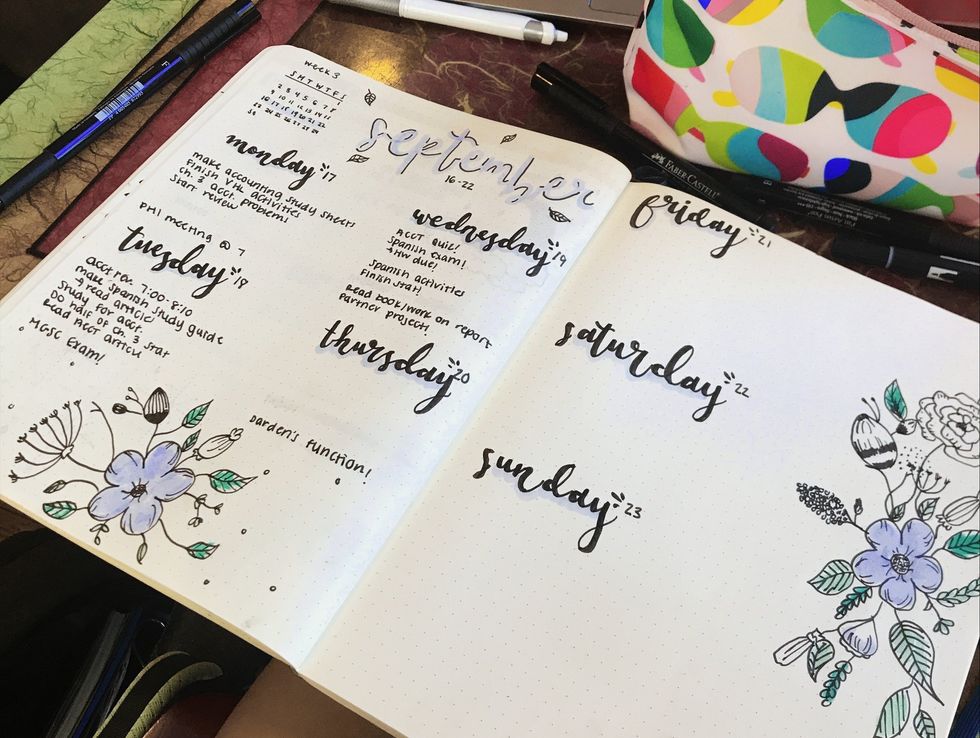 week 3
S M T W T F S
2 3 4 5 6 7 8
9 10 11 12 13 14 15
16 17 18 19 20 21 22
23 24 25 26 27 28 29
30
september
16-22
monday 17
make accounting study sheet!
Finish VHL activities
ch. 3 acct. problem!
start review
PHI meeting @ 7
tuesday 18
acct rev. 7:00-8:10
make spanish study guide
→ read article
study for acct.
Do half of ch. 3 stat
Read ACCT article
MGSC Exam!
wednesday 19
ACCT Quiz!
Spanish exam!
+ HW due!
Spanish activities
Finish stat!
Read book/work on report
Partner project!
thursday 20
Darden's Function!
friday 21
saturday 22
sunday 23
FABER-CASTELL